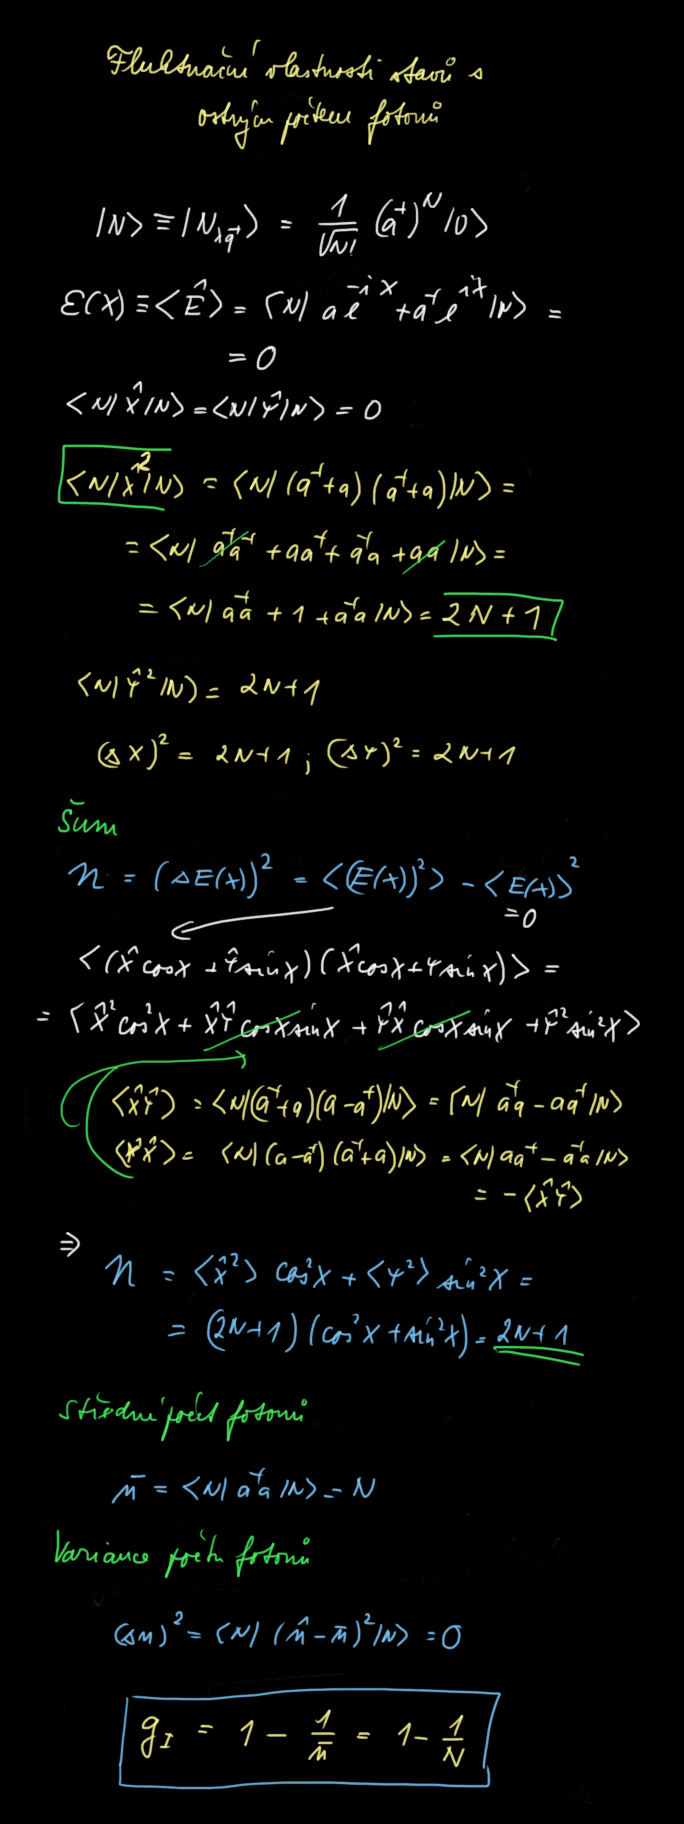 Fluktuační vlastnosti stavů s
ostrým počtem fotonů
|N> ≡ |N_λq> = 1/√N! (a⁺)^N |0>
ℰ(χ) ≡ <Ê> = <N| a e^{-iχ} + a⁺ e^{iχ} |N> =
= 0
<N|X̂|N> = <N|Ŷ|N> = 0
<N|X̂²|N> = <N| (a⁺+a) (a⁺+a) |N> =
= <N| a⁺a⁺ + aa⁺ + a⁺a + aa |N> =
= <N| a⁺a + 1 + a⁺a |N> = 2N+1
<N|Ŷ²|N> = 2N+1
(ΔX)² = 2N+1 ; (ΔY)² = 2N+1
Šum
n = (ΔE(χ))² = <(E(χ))²> - <E(χ)>²
= 0
<(X̂cosχ + Ŷsinχ) (X̂cosχ + Ysinχ)> =
= <X̂²cos²χ + X̂Ŷ cosχ sinχ + ŶX̂ cosχ sinχ + Ŷ²sin²χ>
<X̂Ŷ> = <N|(a⁺+a)(a-a⁺)|N> = <N| a⁺a - aa⁺ |N>
<ŶX̂> = <N| (a-a⁺) (a⁺+a) |N> = <N| aa⁺ - a⁺a |N>
= - <X̂Ŷ>
⇒ n = <X̂²> cos²χ + <Y²> sin²χ =
= (2N+1) (cos²χ + sin²χ) = 2N+1
Střední počet fotonů
n̄ = <N| a⁺a |N> = N
Variance počtu fotonů
(Δn)² = <N| (n̂ - n̄)² |N> = 0
g_I = 1 - 1/n̄ = 1 - 1/N